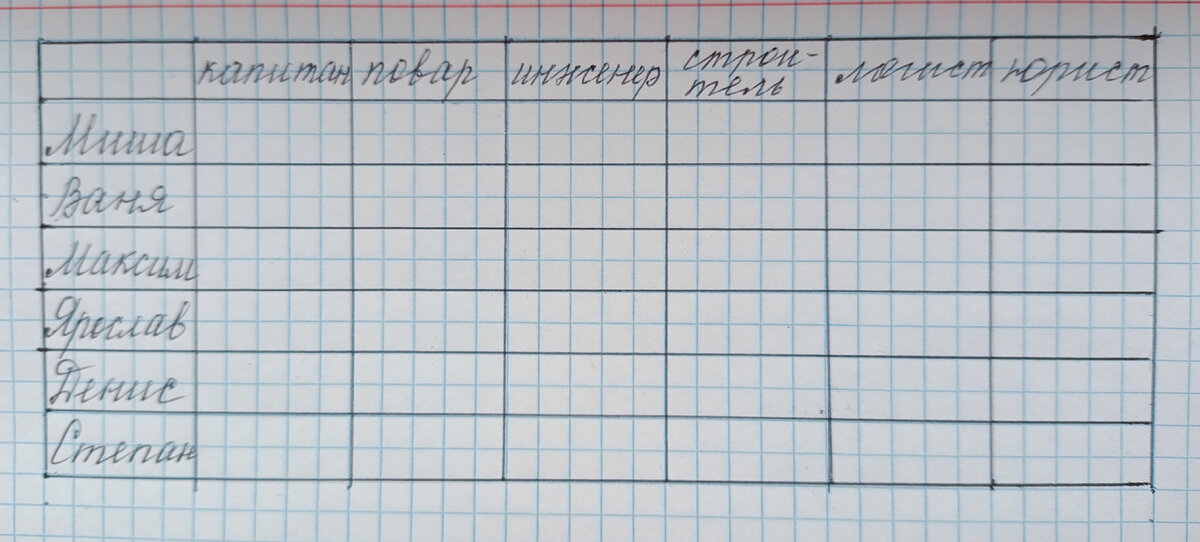 капитан повар инженер строи-
тель логист юрист
Миша
Ваня
Максим
Ярослав
Денис
Степан